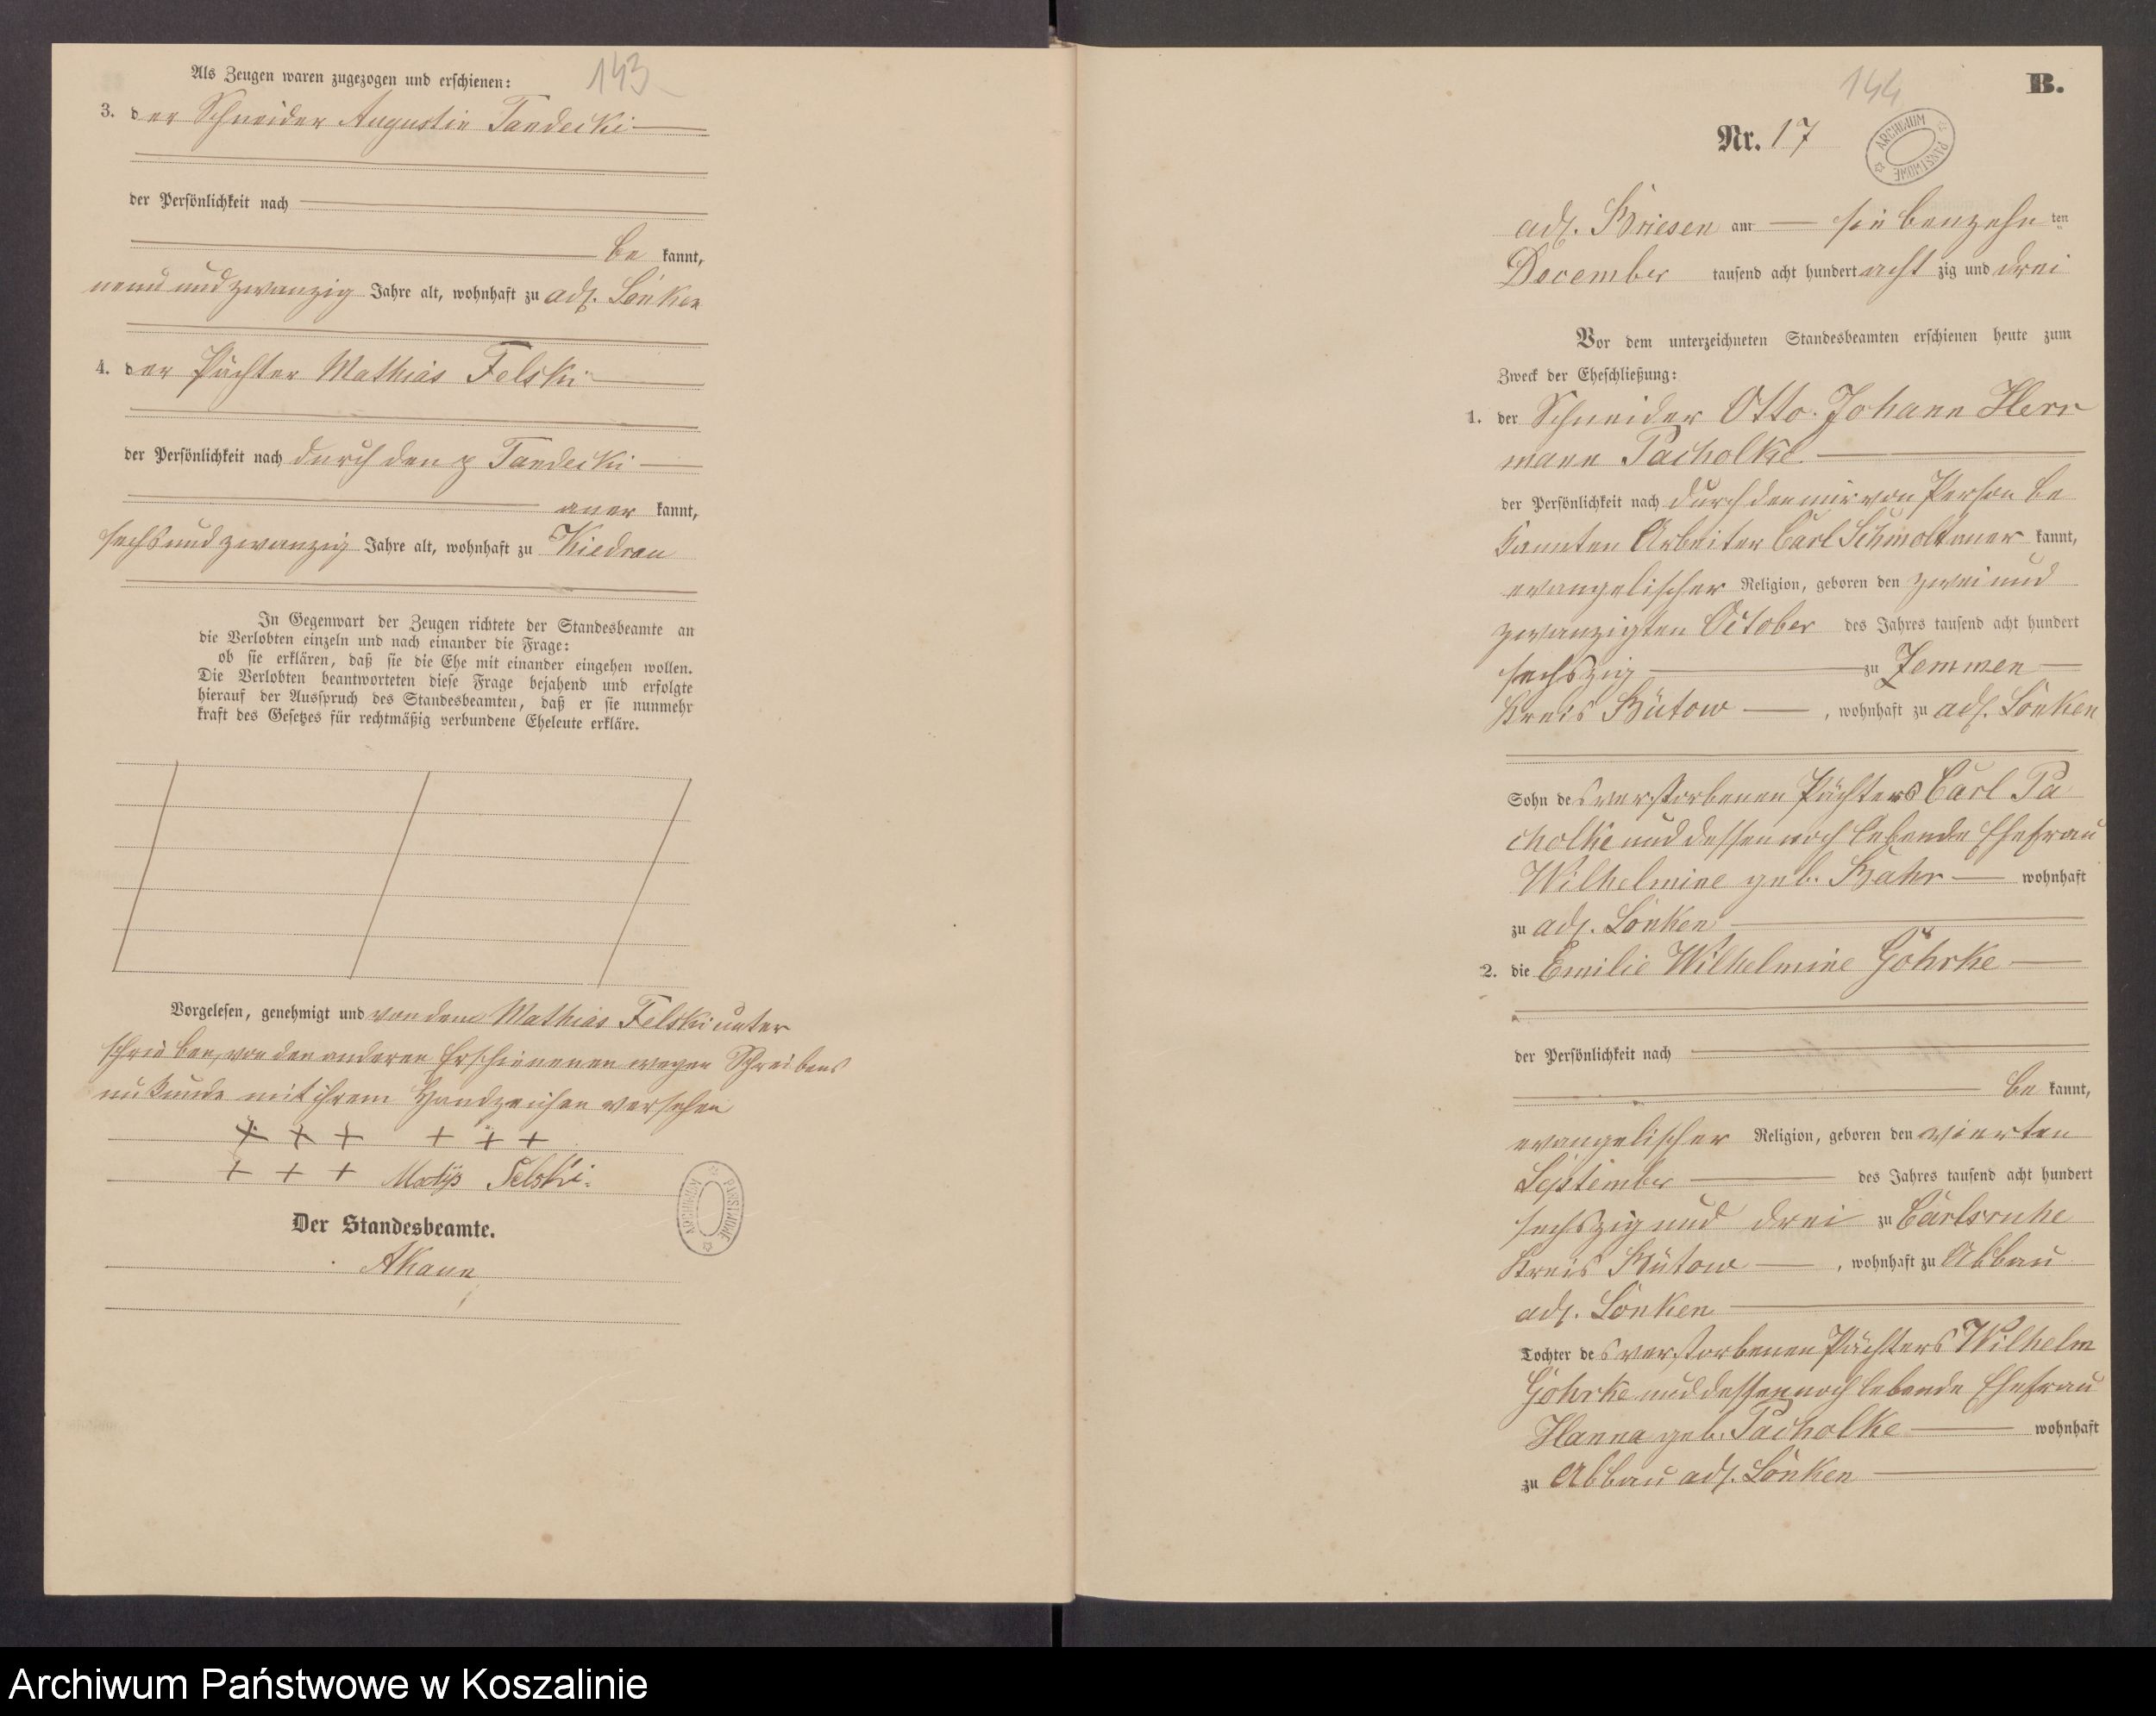 143
Als Zeugen waren zugezogen und erschienen:
3. der Schneider Augustin Tandecki
der Persönlichkeit nach
be kannt,
neun und zwanzig Jahre alt, wohnhaft zu adl. Lonken
4. der Pächter Mathias Felski
der Persönlichkeit nach durch den p Tandecki
aner kannt,
sechsundzwanzig Jahre alt, wohnhaft zu Kiedrau
In Gegenwart der Zeugen richtete der Standesbeamte an
die Verlobten einzeln und nach einander die Frage:
ob sie erklären, daß sie die Ehe mit einander eingehen wollen.
Die Verlobten beantworteten diese Frage bejahend und erfolgte
hierauf der Ausspruch des Standesbeamten, daß er sie nunmehr
kraft des Gesetzes für rechtmäßig verbundene Eheleute erkläre.
Vorgelesen, genehmigt und von dem Mathias Felski unter
schrieben, von den anderen Erschienenen wegen Schreibens
unkunde mit ihrem Handzeichen versehen
+ + + + + +
+ + + Matys Felski.
ARCHIWUM PAŃSTWOWE
Der Standesbeamte.
144
B.
Nr. 17
ARCHIWUM PAŃSTWOWE
adl. Briesen am siebenzehn ten
December tausend acht hundert acht zig und drei
Vor dem unterzeichneten Standesbeamten erschienen heute zum
Zweck der Eheschließung:
1. der Schneider Otto Johann Herr
mann Pacholke
der Persönlichkeit nach durch den mir von Person be
kannten Arbeiter Carl Schmolt aner kannt,
evangelischer Religion, geboren den zwei und
zwanzigten October des Jahres tausend acht hundert
sechszig zu Zemmen
Kreis Bütow, wohnhaft zu adl. Lonken
Sohn des verstorbenen Pächters Carl Pa
cholke und dessen noch lebende Ehefrau
Wilhelmine geb. Bahr wohnhaft
zu adl. Lonken
2. die Emilie Wilhelmine Göhrke
der Persönlichkeit nach
be kannt,
evangelischer Religion, geboren den vierten
September des Jahres tausend acht hundert
sechszig und drei zu Carlsruhe
Kreis Bütow, wohnhaft zu Abbau
adl. Lonken
Tochter des verstorbenen Pächters Wilhelm
Göhrke und dessen noch lebende Ehefrau
Hanna geb. Pacholke wohnhaft
zu Abbau adl. Lonken
Archiwum Państwowe w Koszalinie